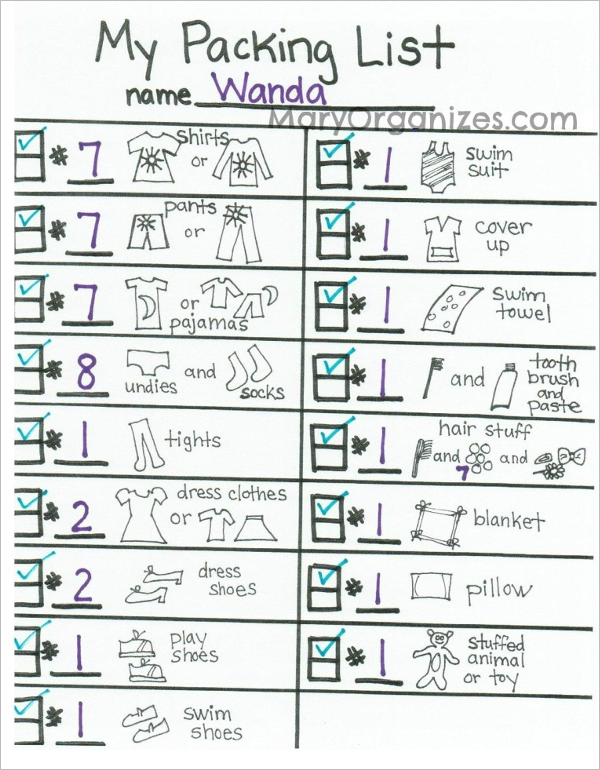 My Packing List
name Wanda
MaryOrganizes.com
# 7 shirts
or
# 7 pants
or
# 7 or
pajamas
# 8 undies and socks
# 1 tights
# 2 dress clothes
or
# 2 dress
shoes
# 1 play
shoes
# 1 swim
shoes
# 1 swim
suit
# 1 cover
up
# 1 swim
towel
# 1 and tooth
brush
and
paste
# 1 hair stuff
and and
7
# 1 blanket
# 1 pillow
# 1 stuffed
animal
or toy